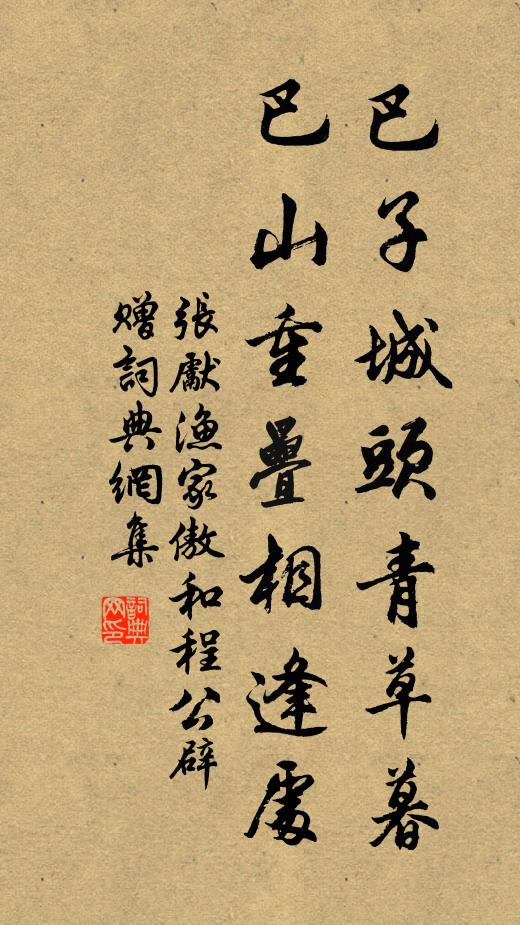 巴子城頭青草暮
巴山重疊相逢處
張獻漁家傲和程公辟
贈詞典網集
詞典
网印